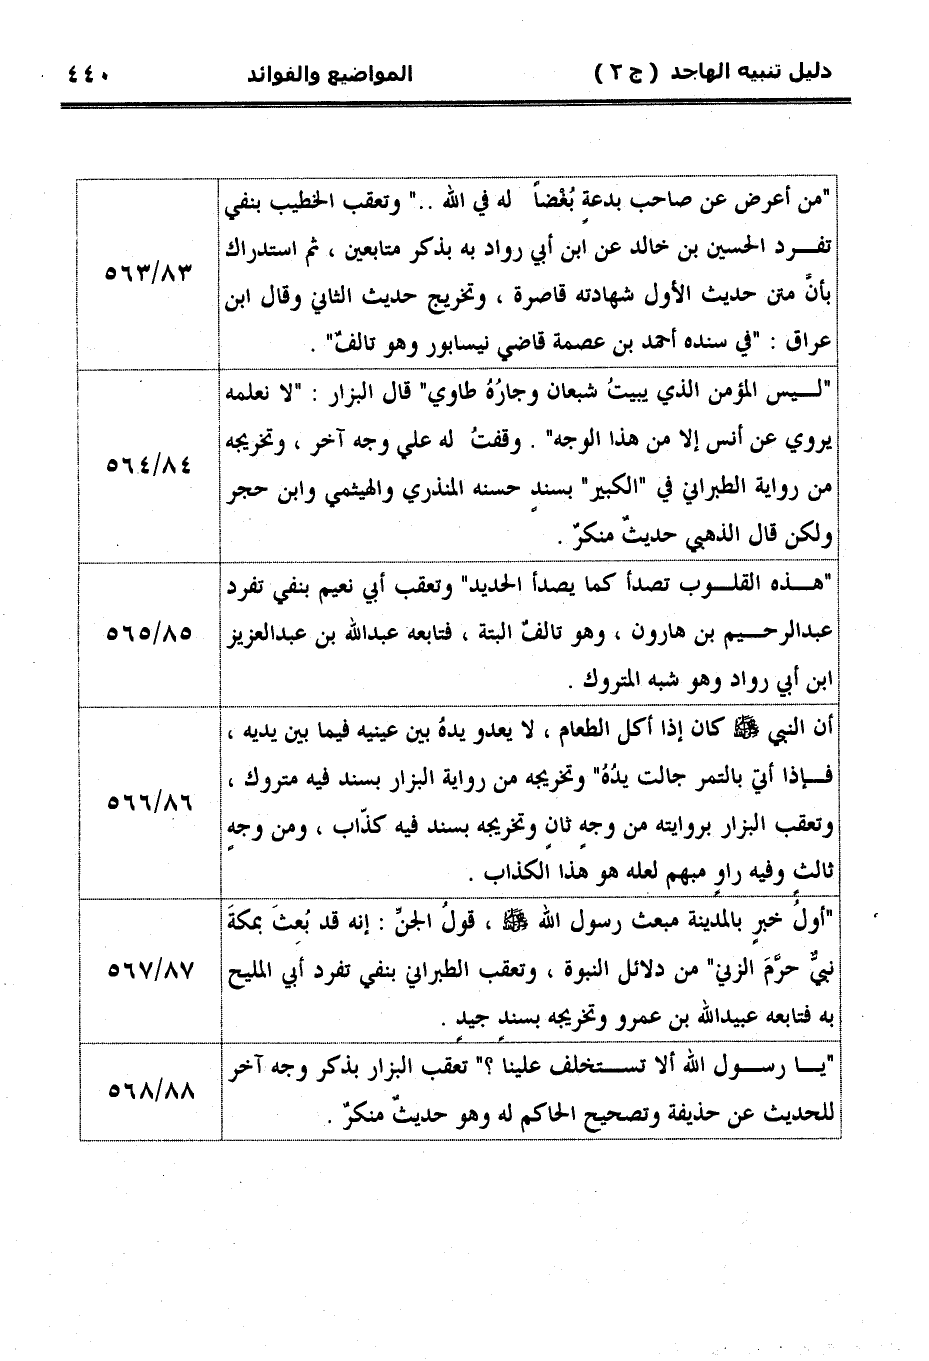 دليل تنبيه الهاجد ( ج ٢ )
المواضيع والفوائد
٤٤٠
"من أعرض عن صاحب بدعةٍ بُغْضاً له في الله .." وتعقب الخطيب بنفي
تفـــرد الحسين بن خالد عن ابن أبي رواد به بذكر متابعين ، ثم استدراك
بأنَّ متن حديث الأول شهادته قاصرة ، وتخريج حديث الثاني وقال ابن
عراق : "في سنده أحمد بن عصمة قاضي نيسابور وهو تالفٌ" .
٥٦٣/٨٣
"لــيس المؤمن الذي يبيتُ شبعان وجارُهُ طاوي" قال البزار : "لا نعلمه
يروي عن أنس إلا من هذا الوجه" . وقفتُ له علي وجه آخر ، وتخريجه
من رواية الطبراني في "الكبير" بسندٍ حسنه المنذري والهيثمي وابن حجر
ولكن قال الذهبي حديثٌ منكرٌ .
٥٦٤/٨٤
"هـــذه القلــوب تصدأ كما يصدأ الحديد" وتعقب أبي نعيم بنفي تفرد
عبدالرحــيم بن هارون ، وهو تالفٌ البتة ، فتابعه عبدالله بن عبدالعزيز
ابن أبي رواد وهو شبه المتروك .
٥٦٥/٨٥
أن النبي ﷺ كان إذا أكل الطعام ، لا يعدو يدهُ بين عينيه فيما بين يديه ،
فــإذا أتيَ بالتمر جالت يدُهُ" وتخريجه من رواية البزار بسند فيه متروك ،
وتعقب البزار بروايته من وجهٍ ثانٍ وتخريجه بسند فيه كذّاب ، ومن وجهٍ
ثالثٍ وفيه راوٍ مبهم لعله هو هذا الكذاب .
٥٦٦/٨٦
"أولُ خبرٍ بالمدينة مبعث رسول الله ﷺ ، قولُ الجنِّ : إنه قد بُعِثَ بمكةَ
نبيٌّ حرَّمَ الزنيَ" من دلائل النبوة ، وتعقب الطبراني بنفي تفرد أبي المليح
به فتابعه عبيدالله بن عمرو وتخريجه بسندٍ جيدٍ .
٥٦٧/٨٧
"يـــا رســـول الله ألا تســـتخلف علينا ؟" تعقب البزار بذكر وجه آخر
للحديث عن حذيفة وتصحيح الحاكم له وهو حديثٌ منكرٌ .
٥٦٨/٨٨